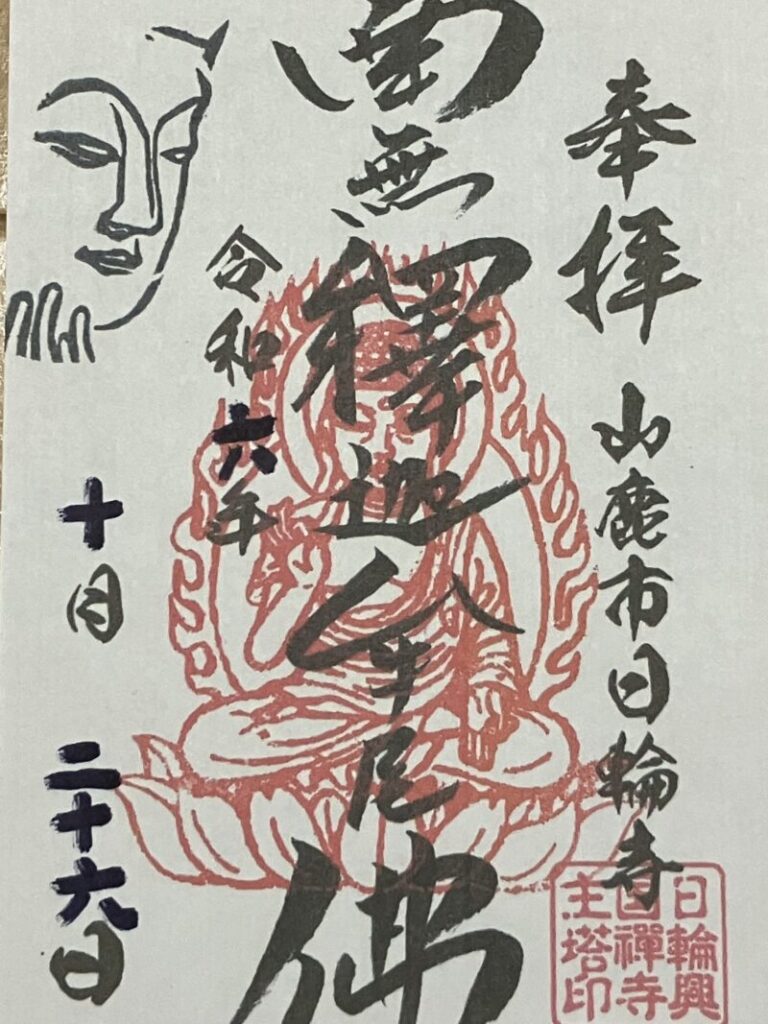 奉拝
山鹿市日輪寺
南無釋迦牟尼佛
令和六年
十月
二十六日
日輪興
国禅寺
主塔印